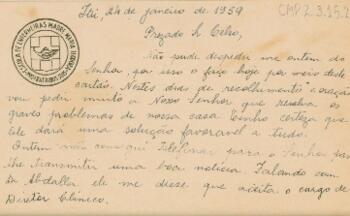 CMP 2.3.15.2
Itú, 24 de janeiro de 1959
Prezado Sr. Célio,
Não pude despedir-me ontem do
Senhor, por isso o faço hoje por meio deste
cartão. Nestes dias de recolhimento e oração
vou pedir muito a Nosso Senhor que resolva os
graves problemas de nossa casa. Tenho certeza que
Êle dará uma solução favoravel a tudo.
Ontem não consegui telefonar para o Senhor para
lhe transmitir uma boa notícia. Falando com
Dr. Abdalla ele me disse que aceita o cargo de
Diretor Clínico.
ESCOLA DE ENFERMEIRAS MADRE MARIA